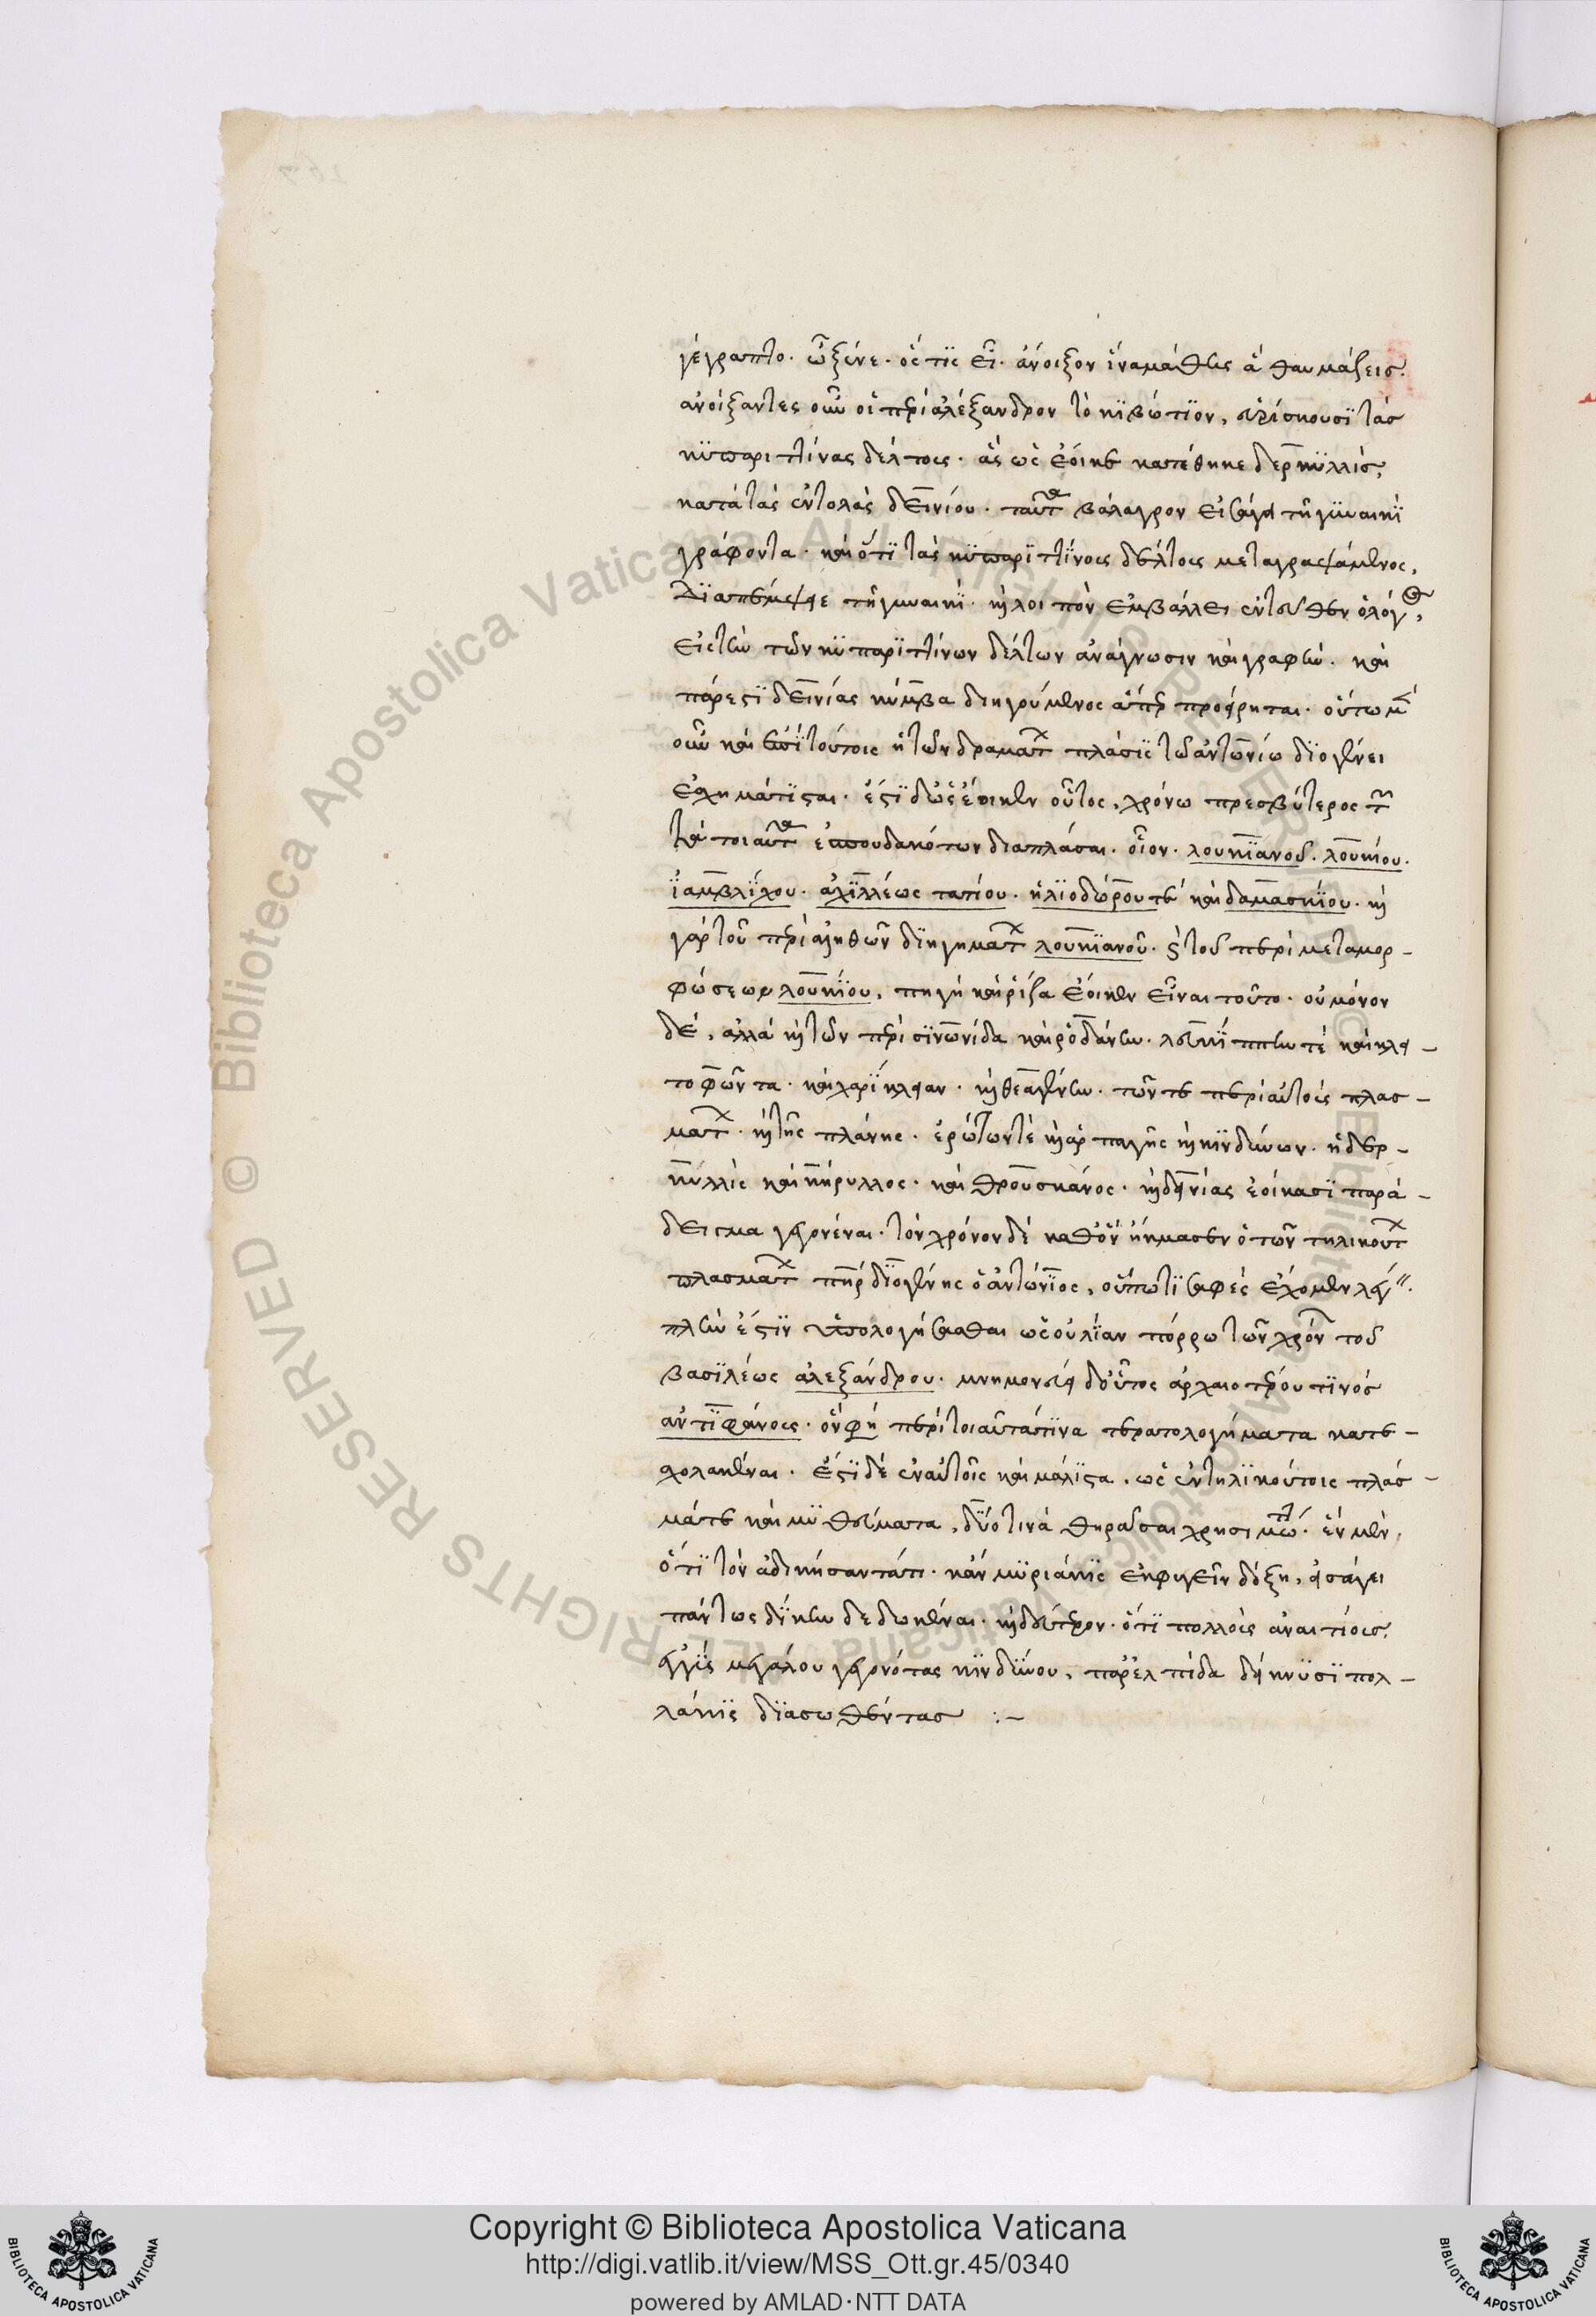 γέγραπτο. ὦ ξένε. ὅς τις εἶ. ἄνοιξον ἵνα μάθῃς ἃ θαυμάζεις.
ἀνοίξαντες οὖν οἱ περὶ ἀλέξανδρον τὸ κϊβώτϊον, εὑρίσκουσϊ τὰσ
κϋπαριττίνας δέλτους. ἃς ὡς ἔοικε κατέθηκε δερκϋλλὶς,
κατὰ τὰς ἐντολὰς δεινίου. ταῦτα βάλαγρον εἰσάγει τῆ γυναικῒ
γράφοντα. καὶ ὅτϊ τὰς κϋπαρϊττίνους δέλτους μεταγραψάμενος,
διαπέμψειε τῆ γυναικί. καὶ λοιπὸν ἐμβάλλει ἐντεῦθεν ὁ λόγος,
εἰς τὴν τῶν κϋπαρϊττίνων δέλτων ἀνάγνωσιν καὶ γραφήν. καὶ
πάρεστϊ δεινίας κύμβα διηγούμενος ἅπερ προείρηται. οὕτω μὲν
οὖν καὶ ἐπῒ τούτοις ἡ τῶν δραμάτων πλάσις τῶ ἀντωνίω δϊογένει
ἐσχημάτϊσται. ἔστϊ δ' ὡς ἔοικεν οὗτος, χρόνω πρεσβύτερος τῶν
τὰ τοιαῦτα ἐσπουδακότων διαπλάσαι. οἷον. λουκϊανοῦ. λουκίου.
ϊαμβλίχου. ἀχϊλλέως τατίου. ἡλϊοδώρου τὲ καὶ δαμασκΐου. καὶ
γὰρ τοῦ περὶ ἀληθῶν δϊηγημάτων λουκϊανοῦ. καὶ τοῦ περὶ μεταμορ-
φώσεων λουκΐου, πηγὴ καὶ ῥίζα ἔοικεν εἶναι τοῦτο. οὐ μόνον
δὲ, ἀλλὰ καὶ τῶν περὶ σϊνωνίδα καὶ ῥοδάνην. λευκΐππην τὲ καὶ κλει-
τοφῶντα. καὶ χαρΐκλειαν. καὶ θεαγένην. τῶν τε περὶ αὐτοὺς πλασ-
μάτων. καὶ τῆς πλάνης. ἐρώτων τὲ καὶ ἁρπαγῆς καὶ κϊνδύνων. ἡ δερ-
κυλλὶς καὶ κήρυλλος. καὶ θρουσκάνος. καὶ δεινίας ἐοίκασϊ παρά-
δειγμα γεγονέναι. τὸν χρόνον δὲ καθ' ὃν ἤκμασεν ὁ τῶν τηλικούτων
πλασμάτων πατὴρ δϊογένης ὁ ἀντώνϊος, οὔπω τϊ σαφὲς ἔχομεν λέγειν.
πλὴν ἔστϊν ὑπολογήσασθαι ὡς οὐ λΐαν πόρρω τῶν χρόνων τοῦ
βασϊλέως ἀλεξάνδρου. μνημονεύει δ' οὗτος ἀρχαιοτέρου τϊνὸς
ἀντϊφάνους. ὅν φησὶ περὶ τοιαῦτά τϊνα τερατολογήματα κατε-
σχολακέναι. ἔστϊ δὲ ἐν αὐτοῖς καὶ μάλϊστα, ὡς ἐν τηλϊκούτοις πλάσ-
μασί τε καὶ μϋθεύμασι, δΰο τινὰ θηρᾶσαι χρησιμώτατα. ἓν μὲν,
ὅτϊ τὸν ἀδικήσαντά τι. κἂν μϋριάκις ἐκφυγεῖν δόξη, εἰσάγει
πάντως δΐκην δεδωκέναι. καὶ δεύτερον. ὅτϊ πολλοὺς ἀναιτίους,
ἐγγὺς μεγάλου γεγονότας κϊνδύνου, παρ' ἐλπίδα δείκνϋσϊ πολ-
λάκϊς δϊασωθέντας :-
Copyright © Biblioteca Apostolica Vaticana
http://digi.vatlib.it/view/MSS_Ott.gr.45/0340
powered by AMLAD·NTT DATA